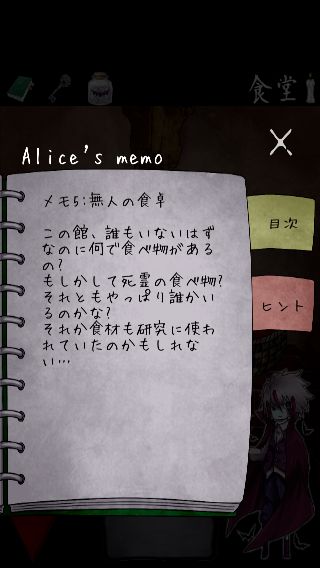 食堂
Alice's memo
メモ5:無人の食卓
この館、誰もいないはず
なのに何で食べ物がある
の?
もしかして死霊の食べ物?
それともやっぱり誰かい
るのかな?
それか食材も研究に使わ
れていたのかもしれな
い…
目次
ヒント